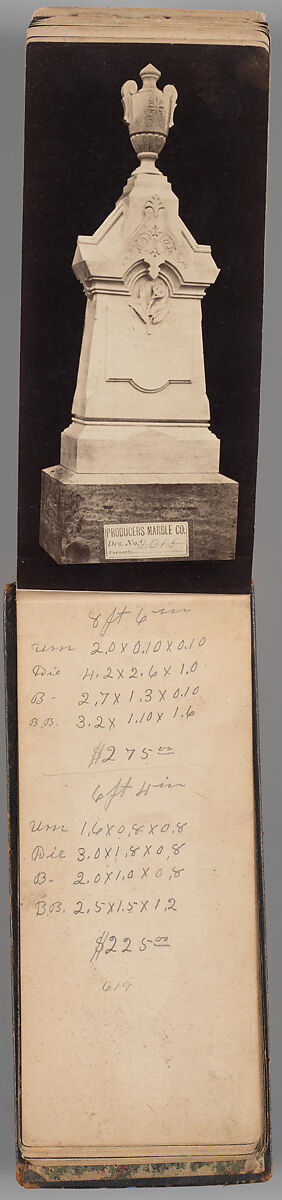 PRODUCERS MARBLE CO.
Des. No.
Formerly
8 ft 6 in
Urn 2.0 x 0.10 x 0.10
Die 4.2 x 2.6 x 1.0
B- 2.7 x 1.3 x 0.10
B.B. 3.2 x 1.10 x 1.6
$275.00
6 ft 4 in
Urn 1.6 x 0.8 x 0.8
Die 3.0 x 1.8 x 0.8
B- 2.0 x 1.0 x 0.8
B.B. 2.5 x 1.5 x 1.2
$225.00
619